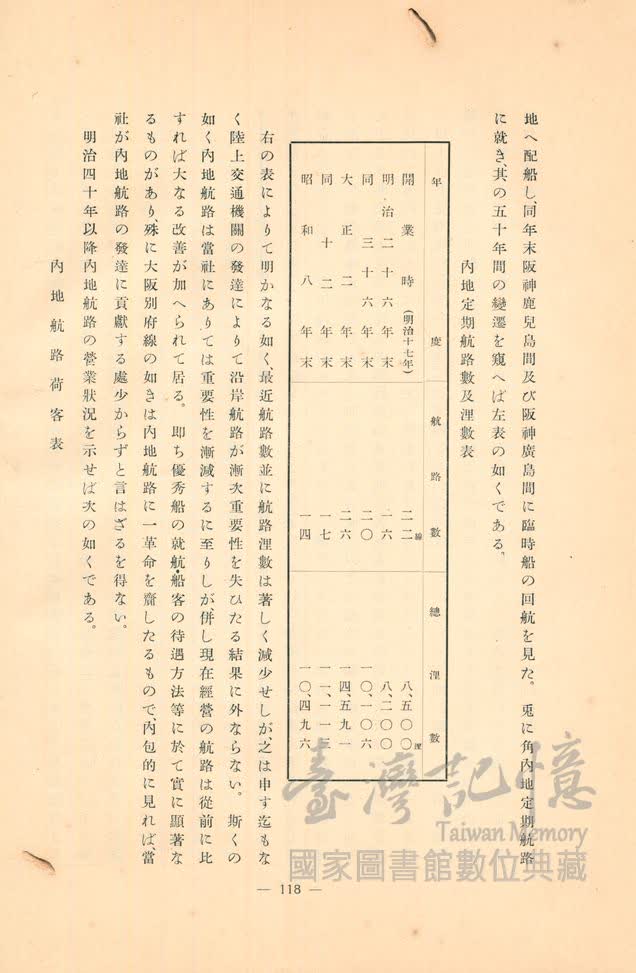 地へ配船し、同年末阪神鹿兒島間及び阪神廣島間に臨時船の回航を見た。兎に角內地定期航路
に就き、其の五十年間の變遷を窺へば左表の如くである。
內地定期航路數及浬數表
年度 航路數 總浬數
開業時(明治十七年) 二二線 八、五〇〇浬
明治二十六年末 一六 八、二〇〇
同三十六年末 二〇 一〇、一〇六
大正二年末 二六 一四、五九一
同十二年末 一七 一一、一一三
昭和八年末 一四 一〇、四九六
右の表によりて明かなる如く、最近航路數並に航路浬數は著しく減少せしが、之は申す迄もな
く陸上交通機關の發達によりて沿岸航路が漸次重要性を失ひたる結果に外ならない。斯くの
如く內地航路は當社にありては重要性を漸減するに至りしが、併し現在經營の航路は從前に比
すれば大なる改善が加へられて居る。卽ち優秀船の就航、船客の待遇方法等に於て實に顯著な
るものがあり、殊に大阪別府線の如きは內地航路に一革命を齎したるもので、內包的に見れば、當
社が內地航路の發達に貢獻する處少からずと言はざるを得ない。
明治四十年以降內地航路の營業狀況を示せば次の如くである。
內地航路荷客表
— 118 —
臺灣記憶
Taiwan Memory
國家圖書館數位典藏